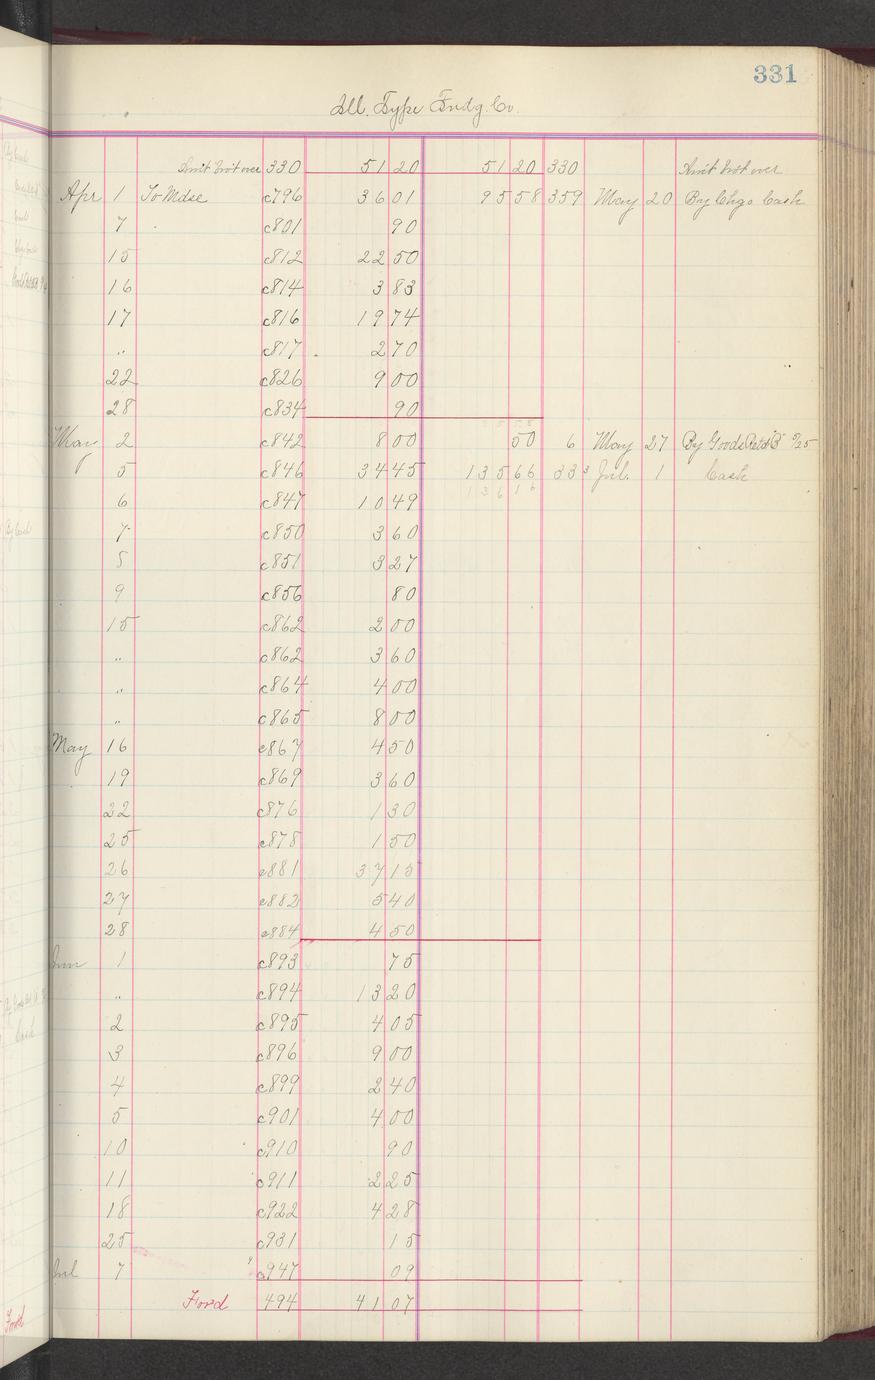 331
Ill. Type Fndg. Co.
Am't bro't over 330 51 20 51 20 330 Am't bro't over
Apr 1 To Mdse c796 36 01 95 58 359 May 20 By Chgo Cash
7 c801 90
15 c812 22 50
16 c814 3 83
17 c816 19 74
" c817 2 70
22 c826 9 00
28 c834 90
May 2 c842 8 00 50 6 May 27 By Goods Ret'd B 5/25
5 c846 34 45 135 66 333 Jul. 1 Cash
6 c847 10 49 136 16
7 c850 3 60
8 c851 3 27
9 c856 80
15 c862 2 00
" c862 3 60
" c864 4 00
" c865 8 00
May 16 c867 4 50
19 c869 3 60
22 c876 1 30
25 c878 1 50
26 c881 37 15
27 c882 5 40
28 c884 4 50
Jun 1 c893 75
" c894 13 20
2 c895 4 05
3 c896 9 00
4 c899 2 40
5 c901 4 00
10 c910 90
11 c911 2 25
18 c922 4 28
25 c931 15
Jul 7 c947 09
Ford 494 41 07